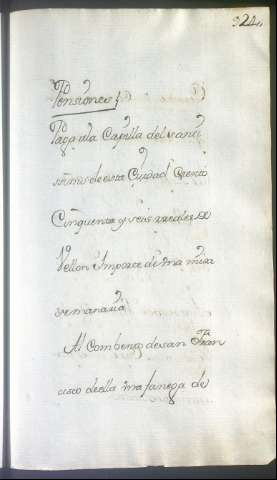 324,
Pensiones
Paga ala Capilla del santi
ssimo de esta Ciudad Ciento
Cinquenta y seis reales de
Vellon Importe de Una misa
semanaria
Al Combento de san Fran
cisco de ella Una fanega de